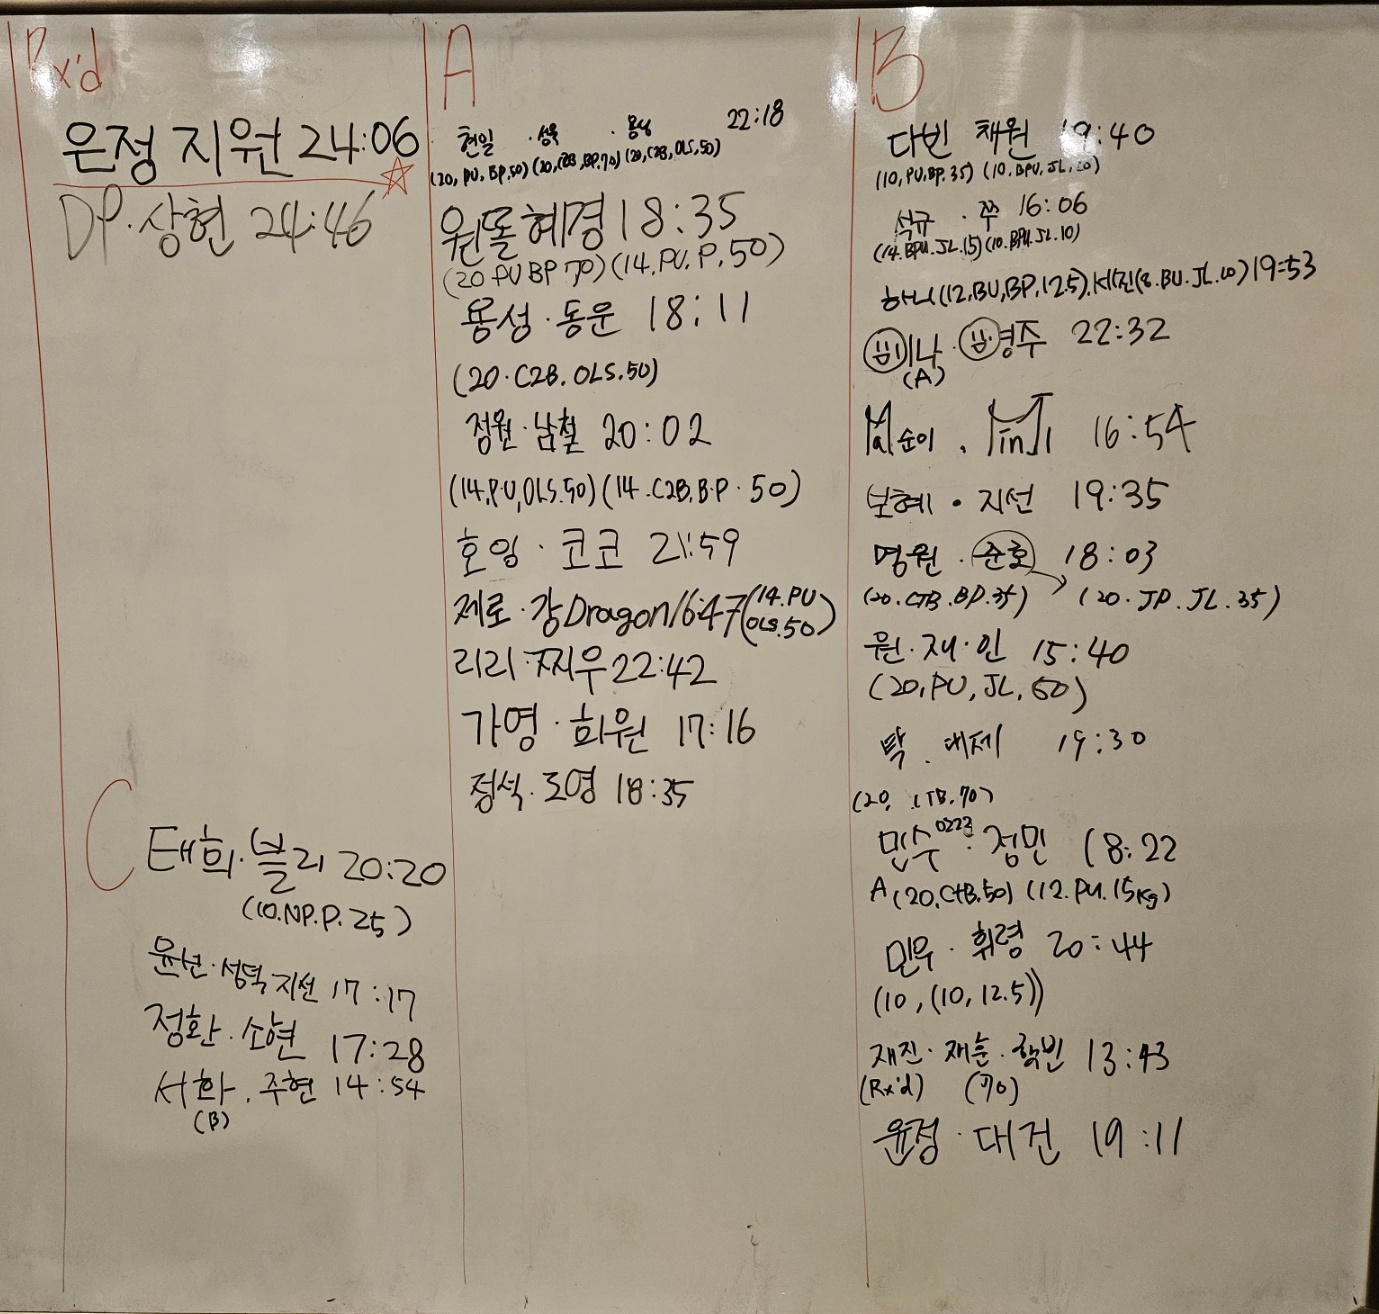 Rx'd
은정 지원 24:06
DP. 상현 24:46
A
현일 · 성욱 · 용성 22:18
(20, PU, BP.50) (20, C2B, BP.70) (20, C2B, OLS, 50)
원돌 혜경 18:35
(20.PU BP 70) (14, PU, P, 50)
용성 · 동운 18:11
(20. C2B. OLS. 50)
정원 · 남철 20:02
(14, P.U, OLS. 50) (14. C2B, B.P. 50)
호잉 · 코코 21:59
제로 · 강Dragon 16:47 (14.PU
OLS.50)
리리 · 찌우 22:42
가영 · 희원 17:16
정석 · 도영 18:35
B
다빈 채원 19:40
(10, PU, BP. 35) (10. BPU, JL, 20)
석규 · 쭈 16:06
(14. BPU. JL. 15) (10. BPU. JL. 10)
하니 (12, BU, BP, 12.5), 서진 (8. BU. JL. 10) 19:53
미나 · 영주 22:32
(A)
Ma순이 . MinJi 16:54
보혜 · 지선 19:35
명원 · 준호 18:03
(20. CTB. BP. 35) (20. JP. JL. 35)
원 · 재 · 인 15:40
(20, PU, JL, 50)
탁 . 대제 19:30
(20, CTB. 70)
민수0223 · 정민 18:22
A (20. CTB. 50) (12. PU. 15kg)
민우 · 휘령 20:44
(10, (10, 12.5))
재진 · 재훈 · 학빈 13:43
(Rx'd) (70)
윤정 · 대건 19:11
C
태희 · 블리 20:20
(10. NP. P. 25)
윤선 · 성덕 지선 17:17
정환 · 소현 17:28
서화 . 주현 14:54
(B)